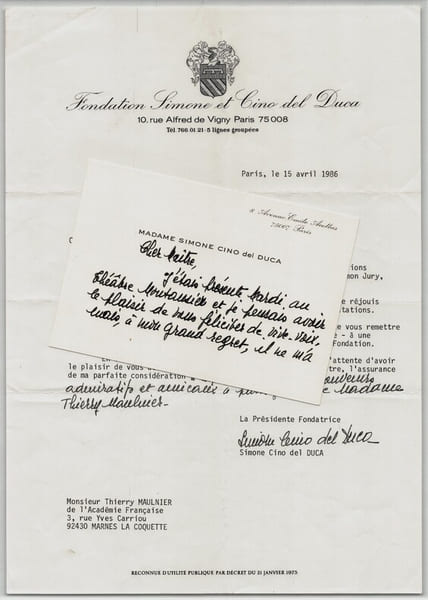 Fondation Simone et Cino del Duca
10, rue Alfred de Vigny Paris 75008
Tél 766 01 21-5 lignes groupées
Paris, le 15 avril 1986
8 Avenue Emile Acollas
75007 Paris
MADAME SIMONE CINO del DUCA
Cher Maître,
J'étais présente Mardi au
théâtre Montansier et je pensais avoir
le plaisir de vous féliciter de vive-voix,
mais, à mon Grand regret, il ne m'a
mon Jury,
réjouis
vous remettre
- à une
Fondation.
attente d'avoir
le plaisir de vous
l'assurance
de ma parfaite considération
admiratifs et amicaux à
Madame
Thierry Maulnier-
La Présidente Fondatrice
Simone Cino del Duca
Simone Cino del DUCA
Monsieur Thierry MAULNIER
de l'Académie Française
3, rue Yves Carriou
92430 MARNES LA COQUETTE
RECONNUE D'UTILITÉ PUBLIQUE PAR DÉCRET DU 21 JANVIER 1975